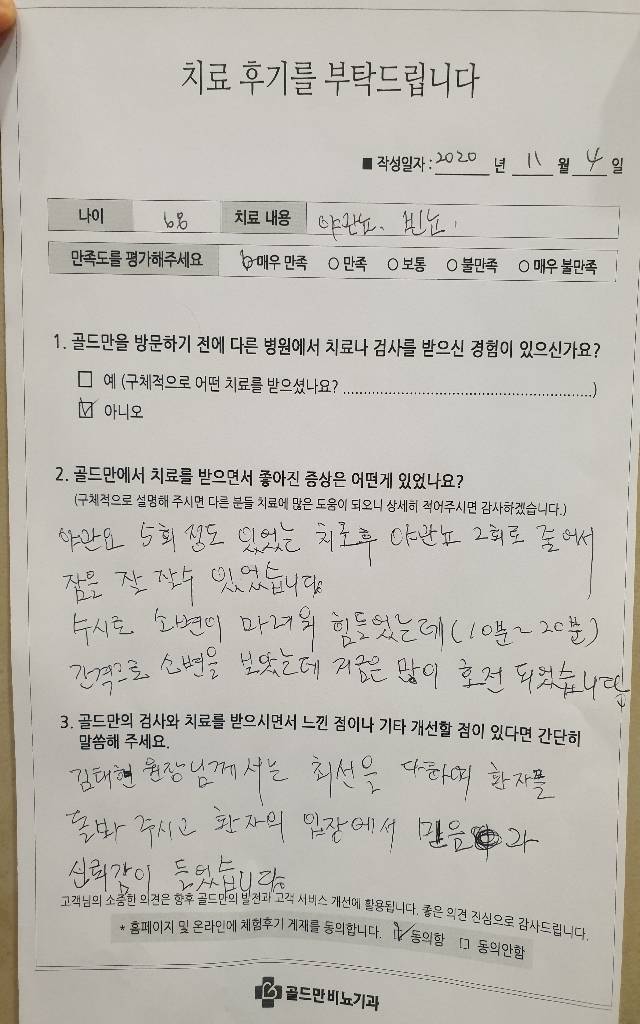 치료 후기를 부탁드립니다
■ 작성일자 : 2020 년 11 월 4 일
나이 68 치료 내용 야관뇨. 빈뇨.
만족도를 평가해주세요 ○매우 만족 ○ 만족 ○ 보통 ○ 불만족 ○ 매우 불만족
1. 골드만을 방문하기 전에 다른 병원에서 치료나 검사를 받으신 경험이 있으신가요?
□ 예 (구체적으로 어떤 치료를 받으셨나요? ........................................................)
☑ 아니오
2. 골드만에서 치료를 받으면서 좋아진 증상은 어떤게 있었나요?
(구체적으로 설명해 주시면 다른 분들 치료에 많은 도움이 되오니 상세히 적어주시면 감사하겠습니다.)
야관뇨 5회 정도 있었는 치료후 야관뇨 2회로 줄어서
잠을 잘 잘수 있었습니다.
수시로 소변이 마려워 힘들었는데 (10분~20분)
간격으로 소변을 보았는데 지금은 많이 호전 되었습니다
3. 골드만의 검사와 치료를 받으시면서 느낀 점이나 기타 개선할 점이 있다면 간단히
말씀해 주세요.
김태현 원장님께서는 최선을 다하여 환자를
돌봐 주시고 환자의 입장에서 믿음과
신뢰감이 들었습니다.
고객님의 소중한 의견은 향후 골드만의 발전과 고객 서비스 개선에 활용됩니다. 좋은 의견 진심으로 감사드립니다.
* 홈페이지 및 온라인에 체험후기 게재를 동의합니다. ☑ 동의함 □ 동의안함
골드만비뇨기과